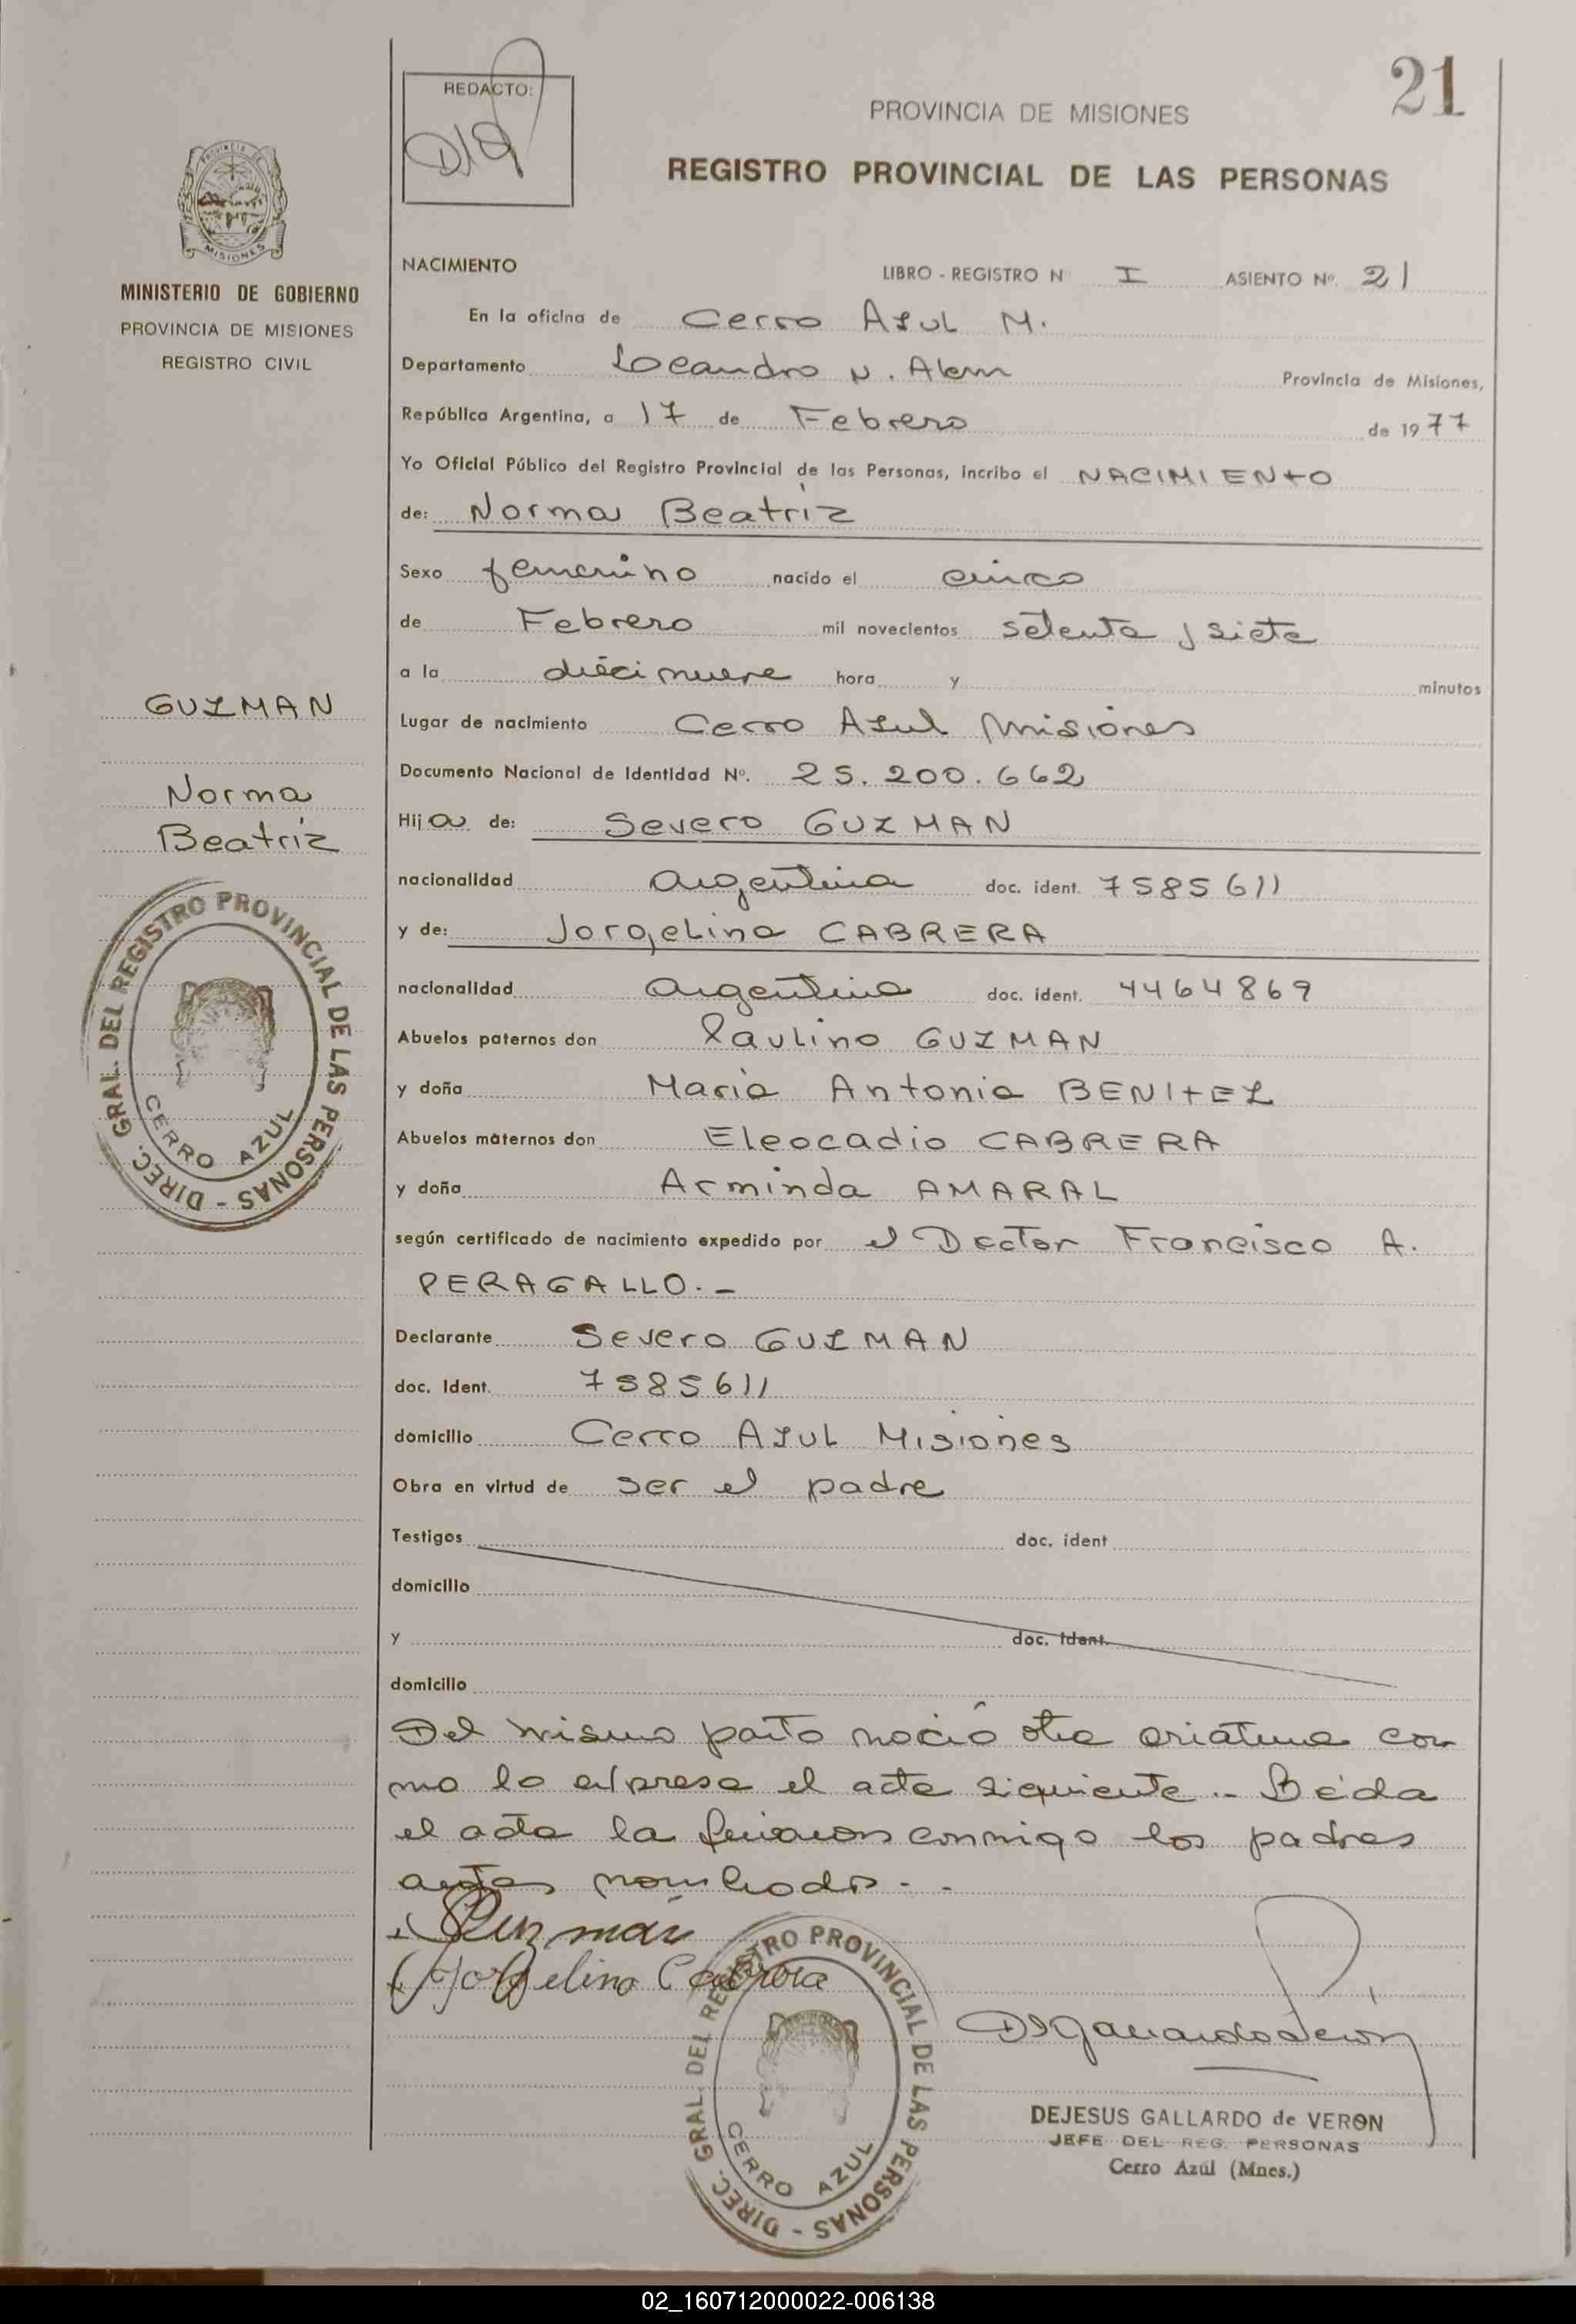 21
REDACTO:
PROVINCIA DE MISIONES
REGISTRO PROVINCIAL DE LAS PERSONAS
PROVINCIA DE
MISIONES
MINISTERIO DE GOBIERNO
PROVINCIA DE MISIONES
REGISTRO CIVIL
NACIMIENTO LIBRO - REGISTRO N I ASIENTO Nº. 21
En la oficina de Cerro Azul M.
Departamento Leandro N. Alem Provincia de Misiones,
República Argentina, a 17 de Febrero de 1977
Yo Oficial Público del Registro Provincial de las Personas, incribo el NACIMIENTO
de: Norma Beatriz
Sexo femenino nacido el cinco
de Febrero mil novecientos setenta y siete
a la diecinueve hora y minutos
GUZMAN
Lugar de nacimiento Cerro Azul Misiones
Documento Nacional de Identidad Nº. 25.200.662
Norma
Beatriz
Hija de: Severo GUZMAN
nacionalidad argentina doc. ident. 7585611
y de: Jorgelina CABRERA
nacionalidad argentina doc. ident. 4464869
Abuelos paternos don Paulino GUZMAN
y doña Maria Antonia BENITEZ
Abuelos maternos don Eleocadio CABRERA
y doña Arminda AMARAL
DIREC. GRAL. DEL REGISTRO PROVINCIAL DE LAS PERSONAS -
CERRO AZUL
según certificado de nacimiento expedido por el Doctor Francisco A.
PERAGALLO.-
Declarante Severo GUZMAN
doc. Ident. 7585611
domicilio Cerro Azul Misiones
Obra en virtud de ser el padre
Testigos doc. ident
domicilio
y doc. Ident.
domicilio
Del mismo parto nació otra criatura co
mo lo expresa el acta siguiente.- Leída
el acta la firmaron conmigo los padres
antes nombrados.-
Guzmán
Jorgelina Cabrera
DIREC. GRAL. DEL REGISTRO PROVINCIAL DE LAS PERSONAS -
CERRO AZUL
DEJESUS GALLARDO de VERON
JEFE DEL REG. PERSONAS
Cerro Azúl (Mnes.)
02_160712000022-006138